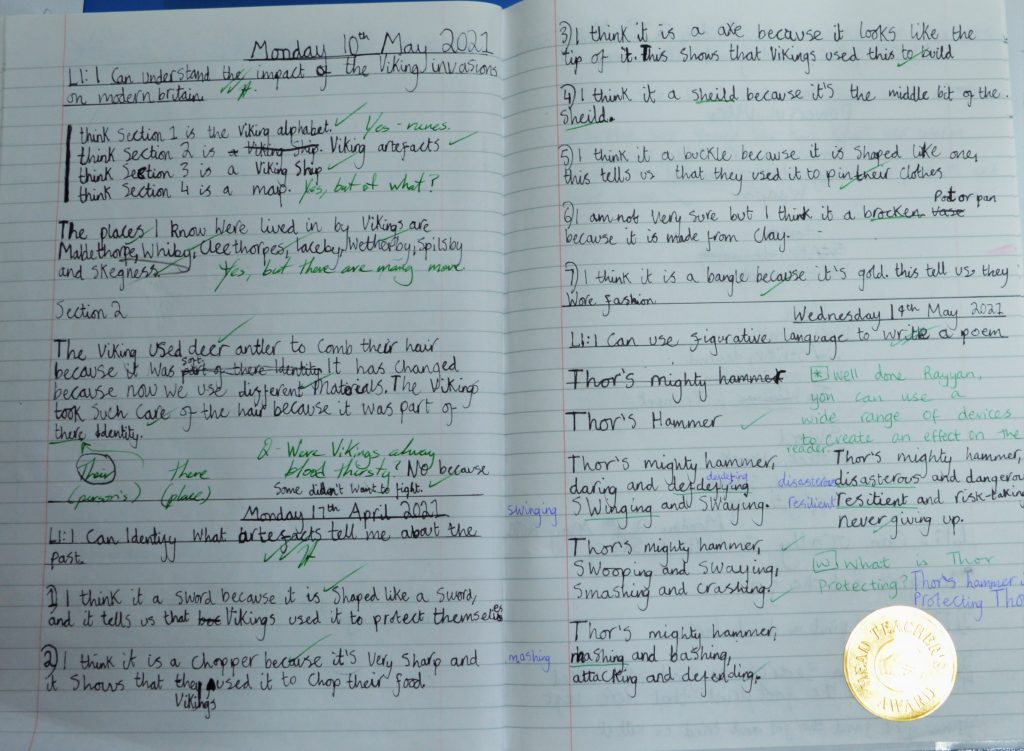 Monday 10th May 2021
LI: I Can understand the impact of the Viking invasions
on modern britain.
think Section 1 is the Viking alphabet. Yes - runes.
think Section 2 is Viking Ship. Viking artefacts
think Section 3 is a Viking Ship
think Section 4 is a map. Yes, but of what?
The places I know Were lived in by Vikings are
Mablethorpe, Whitby, Cleethorpes, Laceby, Wetherby, Spilsby
and Skegness
Yes, but there are many more
Section 2
The Viking used deer antler to Comb their hair
because it was soft part of there Identity It has Changed
because now we use different Materials. The Vikings
took Such Care of the hair because it was part of
there Identity.
Their there
(person's) (place)
Q - Were Vikings always
blood thirsty? No because
Some didn't want to fight.
Monday 17th April 2021
LI: I Can Identify What artefacts tell me about the
past.
1) I think it a Sword because it is Shaped like a Sword,
and it tells us that Vikings used it to protect themselves
2) I think it is a Chopper because it's Very Sharp and
it Shows that they used it to Chop their food.
Vikings
3) I think it is a axe because it looks like the
tip of it. This Shows that Vikings used this to build
4) I think it a Sheild because it's the middle bit of the
Sheild.
5) I think it a buckle because it is Shaped like one,
this tells us that they used it to pin their Clothes
6) I am not Very Sure but I think it a brocken Vase Pot or pan
because it is made from Clay.
7) I think it is a bangle because it's gold. this tell us they
Wore fashion.
Wednesday 19th May 2021
LI: I Can use figurative language to write a poem
Thor's mighty hammer
Thor's Hammer
* Well done Rayyan,
you can use a
wide range of devices
to create an effect on the
reader.
Thor's mighty hammer,
daring and defying
defying
Swinging and Swaying.
swinging
Thor's mighty hammer,
Swooping and Swaying,
Smashing and crashing.
Thor's mighty hammer,
mashing and bashing,
attacking and defending.
mashing
Thor's mighty hammer,
disasterous and dangerous
resilient and risk-taking
never giving up.
disasterous
resilient
W What is Thor
Protecting? Thor's hammer is
Protecting Thor
HEAD TEACHER'S
AWARD